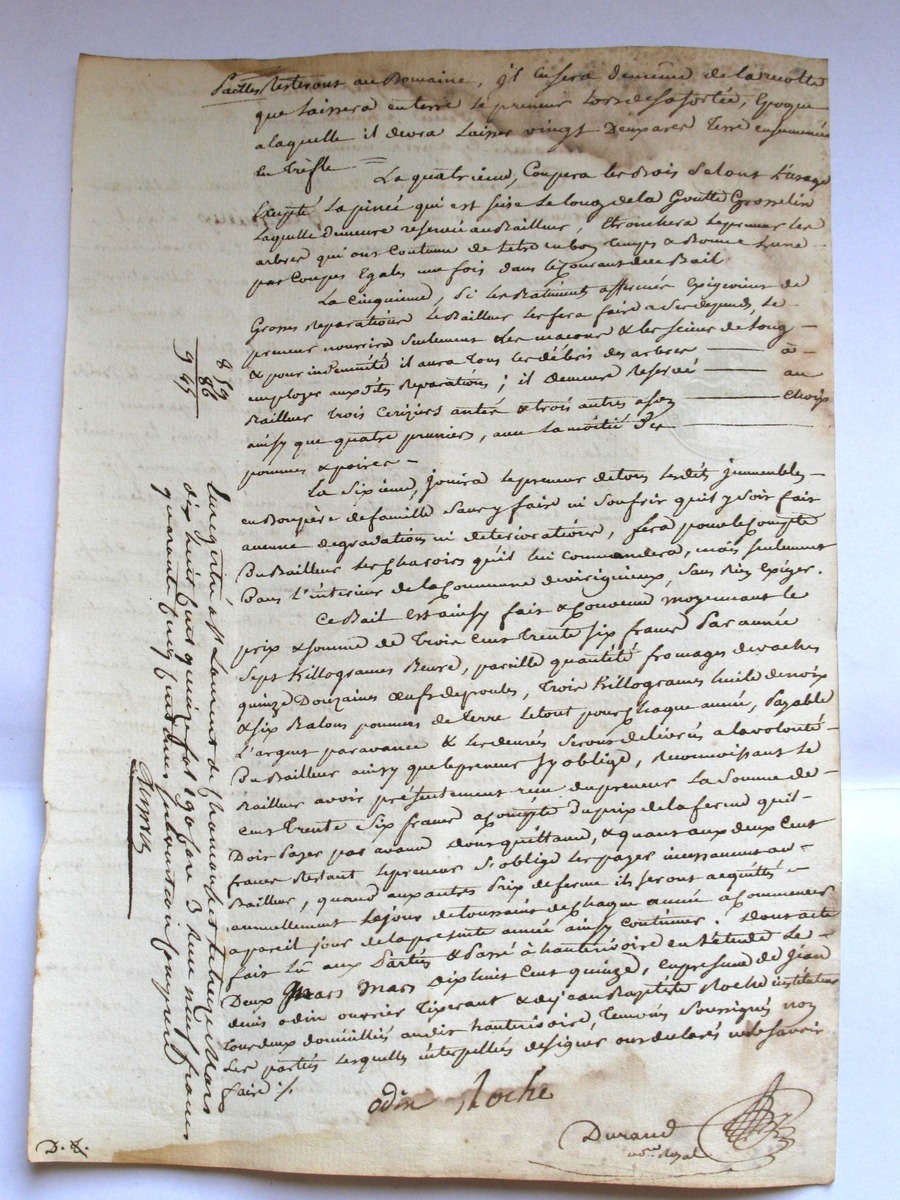 pailles resteront au Domaine, il en sera de même de la recolte
que laissera en terre le preneur lors de sa sortie, Epoque
a laquelle il devra laisser vingt deux ares Terre ensemencée
en trèfle =
La quatrieme, Coupera les Bois selont L'usage
Excepté La pinée qui est size le long de la Goutte Grosselin
laquelle demeure reservée au Bailleur, Etronchera le preneur les
arbres qui ont Coutume de letre en bon temps & Bonne Lune
par Coupes Egales une fois dans le Courant du Bail
La Cinquieme, Si les Batiments affermés Exigeoient de
Grosses Reparations le Bailleur les fera faire a ses depends, le
preneur nourrira seulement les macons & les scieurs de long
& pour indemnité il aura tous les débris des arbres à
employer aux dites Reparations ; il demeure reservé au
Bailleur trois Cerisiers antés & trois autres a son choix
ainsy que quatre pruniers, avec la moitié des
pommes & poires
La Sixieme, jouira le preneur de tous les dits jmmeubles
en Bon père de famille sans y faire ni soufrir qu'il y soit fait
aucune degradation ni déterioration, fera pour le Compte
du Bailleur les charois qu'il lui commandera, mais seulement
dans l'interieur de la Commune de virigneux, sans Rien Exiger.
Ce Bail Est ainsy fait & Convenu moyennant le
prix & somme de Trois Cent trente six francs Par année
Sept Killogrames Beure, pareille quantité fromages de vaches
quinze Douzaines œufs de poules, Trois Killogrames huile de noix
& six Balons pommes de terre le tout pour Chaque année, Payable
L'argent par avance & les denrés seront delivrés a la volonté
du Bailleur ainsy que le preneur s'y oblige, Reconnoissant le
Bailleur avoir présentement reçu du preneur La Somme de
Cent trente Six francs acompte du prix de la ferme qu'il
Doit Payer par avance dont quittance, & quant aux deux Cent
francs Restant le preneur s'oblige les payer incessament au
Bailleur, quand aux autres Prix de ferme ils seront acquittés
annuellement le jour de toussaint de chaque année a commencer
a pareil jour de la presente année ainsy continuer. Dont acte
fait Lû aux Parties & Passé à hauterivoire en l'étude Le
Deux Mars Mars dix huit Cent quinze, en presence de jean
denis odin ouvrier Tixerant & de jean Baptiste Roche instituteur
tous deux domiciliés audit hauterivoire, temoins soussignés non
les parties lesquelles interpellés de signer ont declarés ne le savoir
faire ./.
odin Roche
Durand
no.re Royal
D. X.
8 59
86
9 45
Enregistré à St Laurent de Chamousset le treize Mars
dix huit cent quinze fol 190 case 3 Reçu neuf francs
quarante cinq centimes